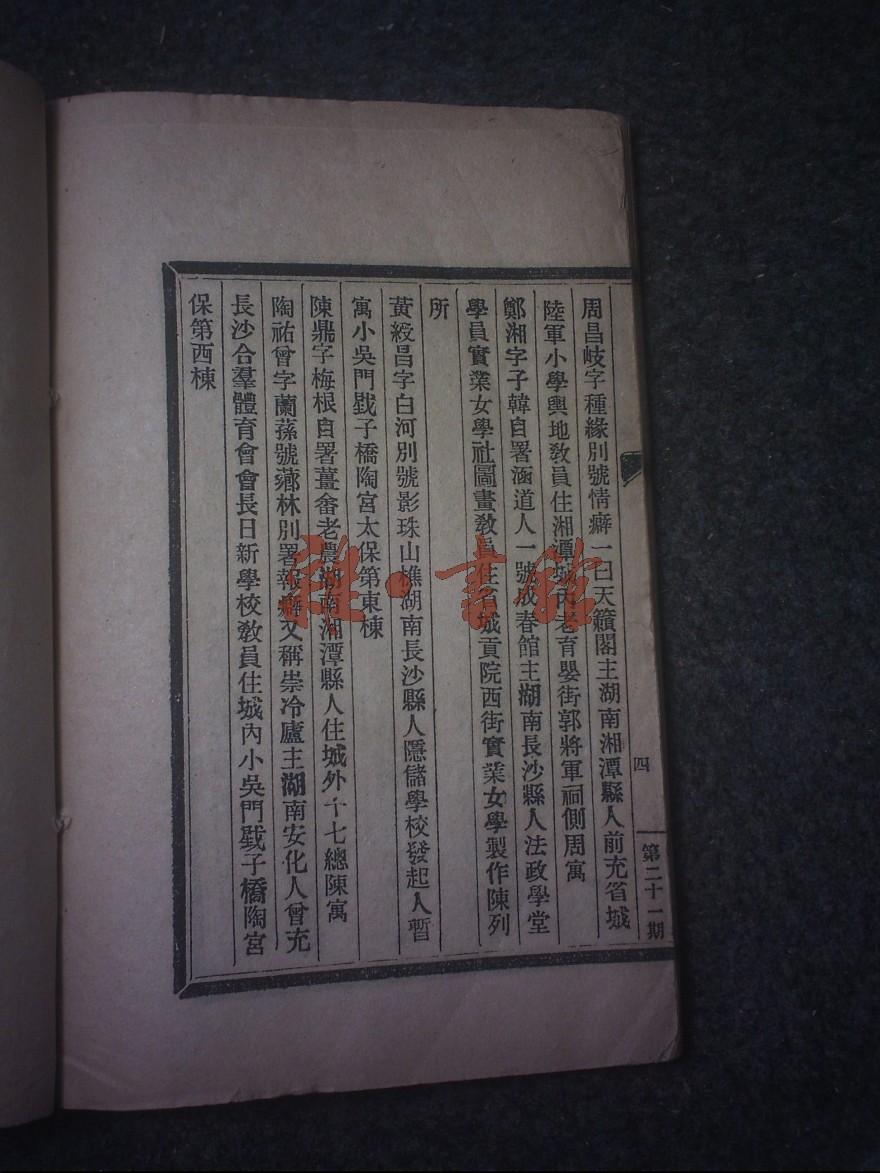 周昌岐字種緣別號情癖一曰天籟閣主湖南湘潭縣人前充省城
陸軍小學輿地敎員住湘潭城內老育嬰街郭將軍祠側周寓
鄭湘字子韓自署涵道人一號成春館主湖南長沙縣人法政學堂
學員實業女學社圖畫敎員住省城貢院西街實業女學製作陳列
所
黃綬昌字白河別號影珠山樵湖南長沙縣人隱儲學校發起人暫
寓小吳門戥子橋陶宮太保第東棟
陳鼎字梅根自署薑畬老農湖南湘潭縣人住城外十七總陳寓
陶祐曾字蘭蓀號薌林別署報癖又稱崇冷廬主湖南安化人曾充
長沙合羣體育會會長日新學校敎員住城內小吳門戥子橋陶宮
保第西棟
四
第二十一期